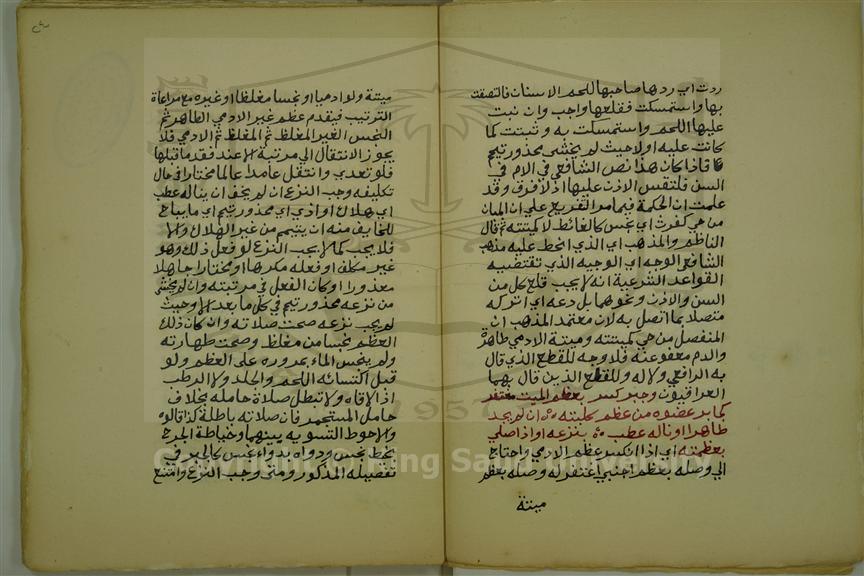 ردت اي ردها صاحبها للحم الاسنان فالتصقت
بها واستمسكت فقلعها واجب وان نبت
عليها اللحم واستمسكت به وثبتت كما
كانت عليه اولا حيث لم يخشى محذور تيمم
فاذا كان هذا نص الشافعي في الام في
السن فلتقس الاذن عليها اذ لا فرق وقد
علمت ان الحكمة فيما مر التفريع علي ان المبان
من حي كفرث اي نجس كالغائط لا كميتته ثم قال
الناظم والمذهب اي الذي انحط عليه مذهب
الشافعي الوجه اي الوجيه الذي تقتضيه
القواعد الشرعية انه لا يجب قلع كل من
السن والاذن ونحوهما بل دعه اي اتركه
متصلا بما اتصل به لان معتمد المذهب ان
المنفصل من حي كميتته وميتة الادمي طاهرة
والدم معفو عنه فلا وجه للقطع الذي قال
به الرافعي ولا له وللمقطع الذين قال بهما
العراقيون وجبر كسر بعظم الميت مغتفر
كما بر عضوه من عظم كليته ان لم يجد
طاهرا او ناله عطب بنزعه او اذا صلي
بعظمته اي اذا انكسر عظم الادمي واحتاج
الي وصله بعظم اجنبي اغتفر له وصله بعظم
ميتة
ميتة ولو ادميا او نجسا مغلظا او غيره مع مراعاة
الترتيب فيقدم عظم غير الادمي الطاهر ثم
النجس الغير المغلظ ثم المغلظ ثم الادمي فلا
يجوز الانتقال الي مرتبة الا عند فقد ما قبلها
فلو تعدي وانتقل عامدا عالما مختارا في حال
تكليفه وجب النزع ان لم يخف ان يناله عطب
اي هلاك او اذي اي محذور تيمم اي ما يباح
للخايف منه ان يتيمم من غير الهلاك والا
فلا يجب كما لا يجب النزع لو فعل ذلك وهو
غير مكلف او فعله مكرها او مختارا جاهلا
معذورا او كان الفعل في مرتبته وان لم يخشى
من نزعه محذور تيمم في كل ما بعد الا وحيث
لم يجب نزعه صحت صلاته وان كان ذلك
العظم نجسا من مغلظ وصحت طهارته
ولم ينجس الماء بمروره على العظم ولو
قبل اكتسائه اللحم والجلد ولا الرطب
اذا لاقاه ولا تبطل صلاة حامله بخلاف
حامل المستجمر فان صلاته باطلة كذا قالوه
والاحوط التسويه بينهما وخياطة الجرح
بخط نجس ودواه بدواء نجس كالجبر في
تفصيله المذكور ومتى وجب النزع وامتنع